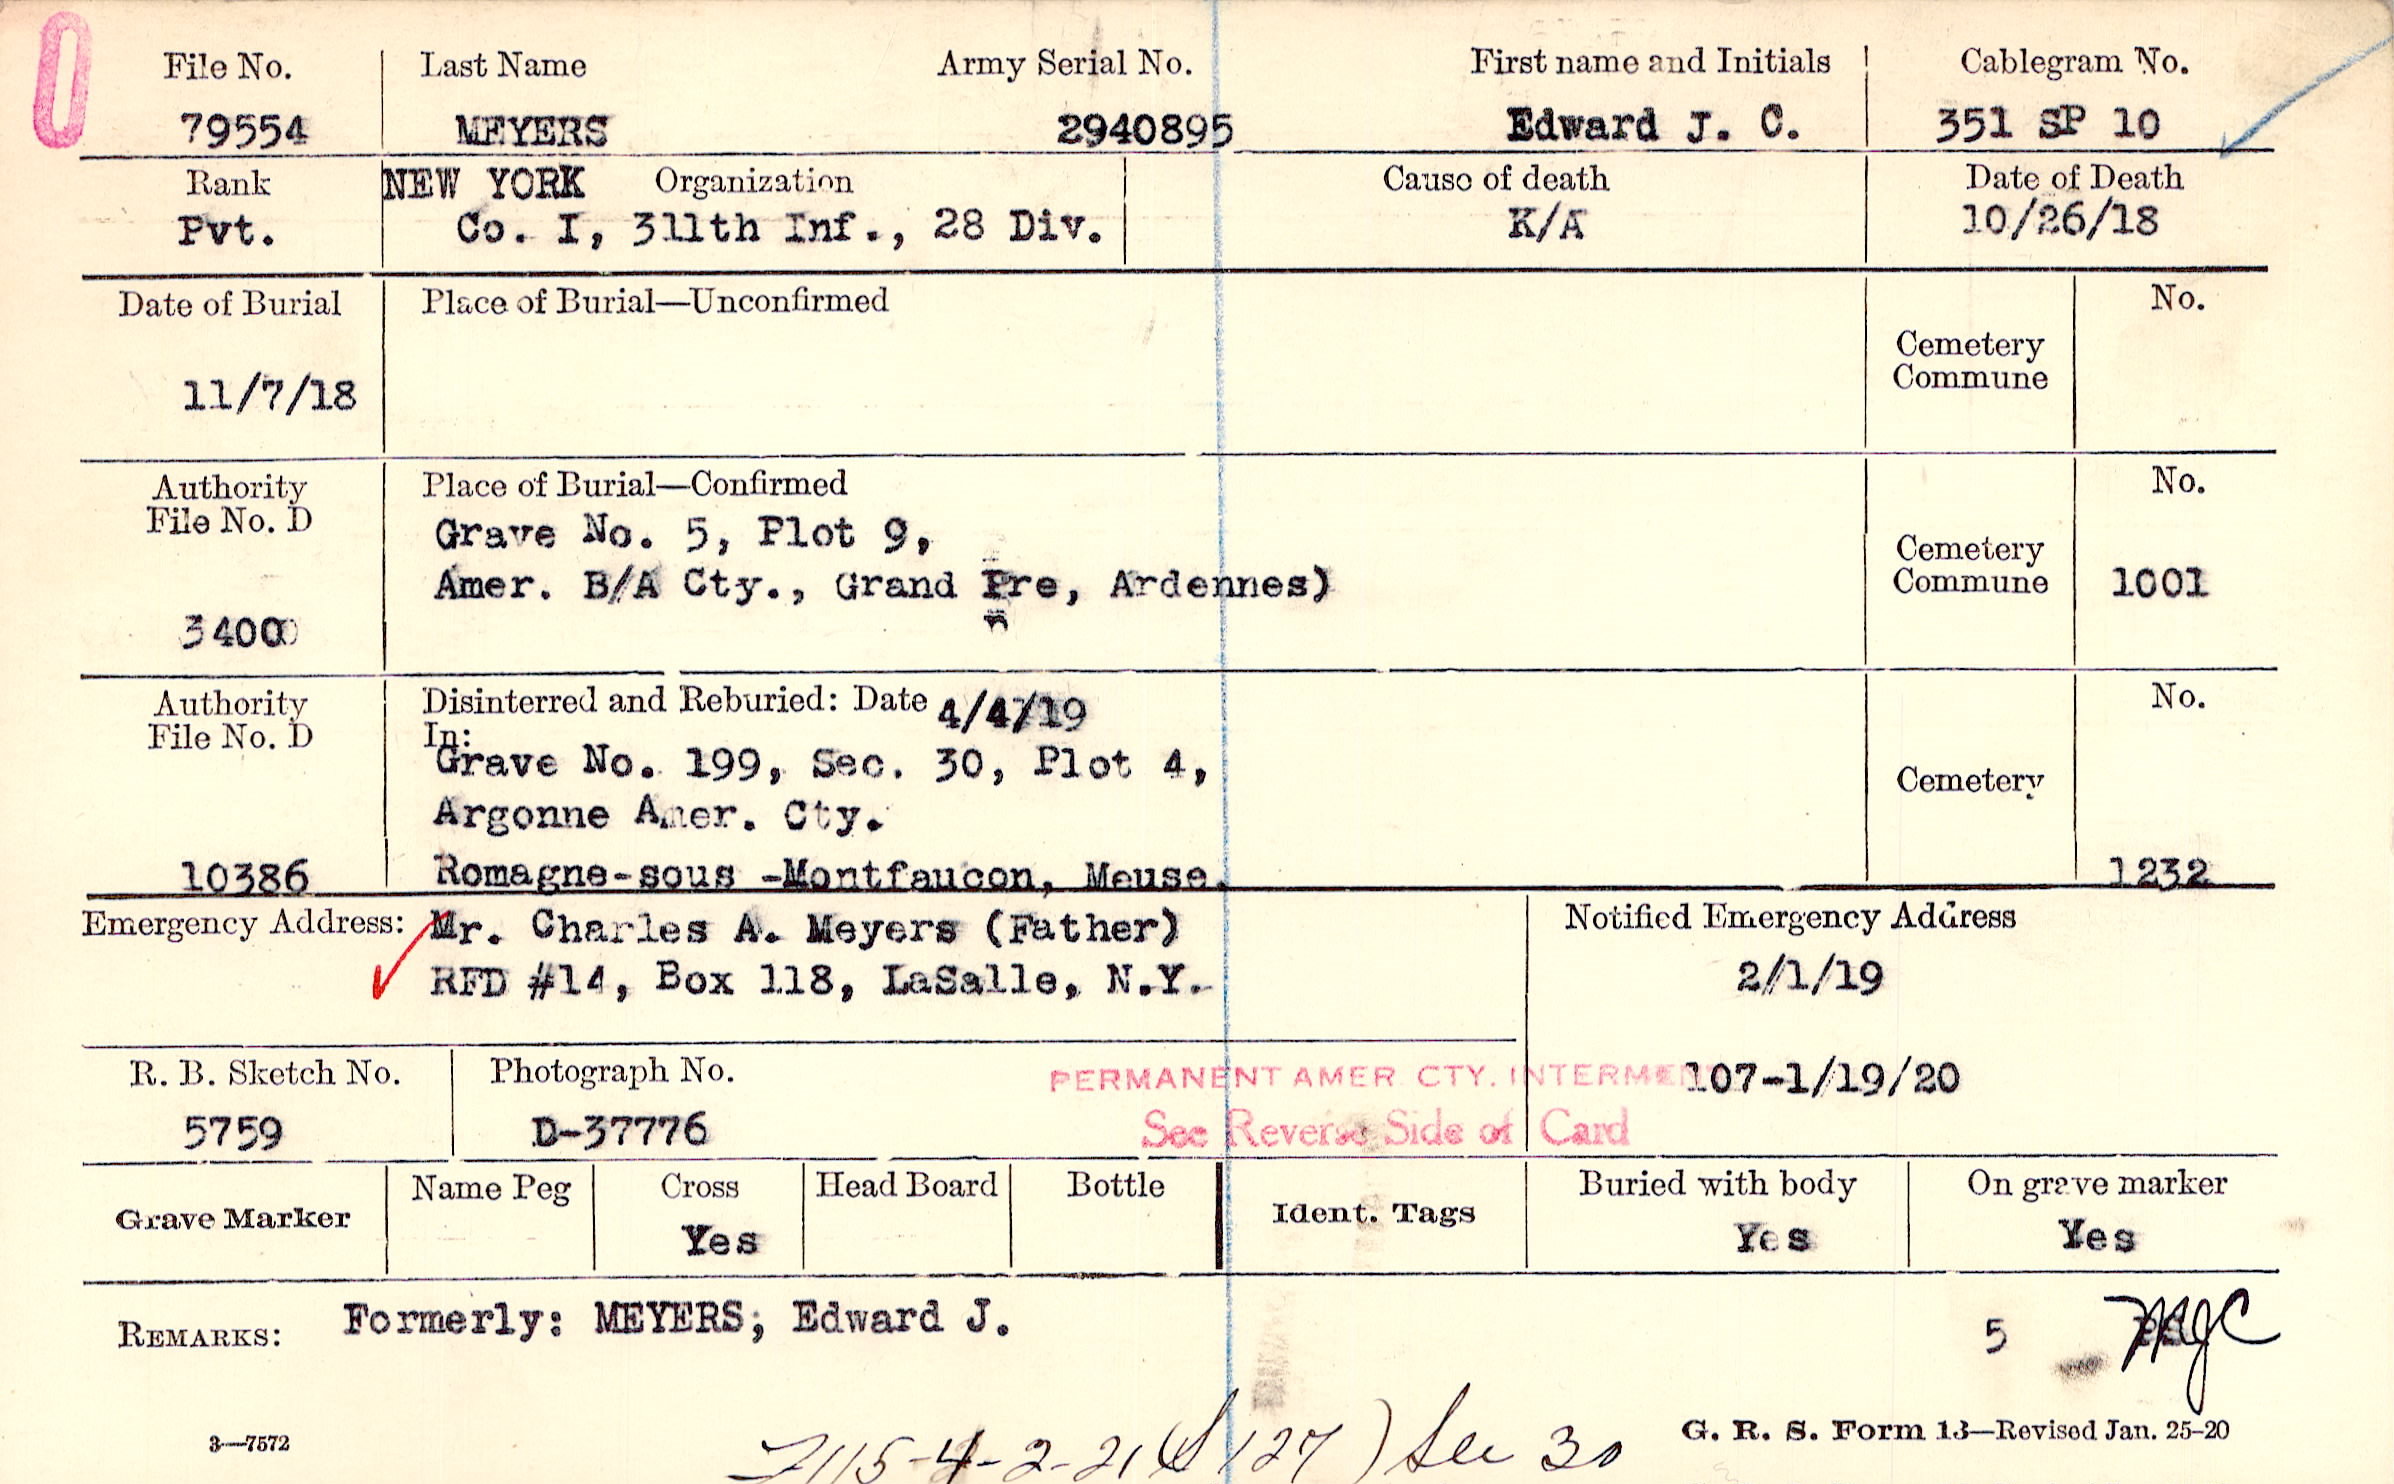 File No. Last Name Army Serial No. First name and Initials Cablegram No.
79554 MEYERS 2940895 Edward J. C. 351 SP 10
Rank NEW YORK Organization Cause of death Date of Death
Pvt. Co. I, 311th Inf., 28 Div. K/A 10/26/18
Date of Burial Place of Burial—Unconfirmed No.
Cemetery
Commune
11/7/18
Authority Place of Burial—Confirmed No.
File No. D
Grave No. 5, Plot 9,
Cemetery
Amer. B/A Cty., Grand Pre, Ardennes) Commune 1001
3400
Authority Disinterred and Reburied: Date 4/4/19 No.
File No. D In:
Grave No. 199, Sec. 30, Plot 4,
Cemetery
Argonne Amer. Cty.
10386 Romagne-sous -Montfaucon, Meuse. 1232
Emergency Address: Mr. Charles A. Meyers (Father) Notified Emergency Address
RFD #14, Box 118, LaSalle, N.Y. 2/1/19
R. B. Sketch No. Photograph No. PERMANENT AMER. CTY. 107-1/19/20
5759 D-37776 See Reverse Side of Card
Grave Marker Name Peg Cross Head Board Bottle Ident. Tags Buried with body On grave marker
Yes Yes Yes
REMARKS: Formerly: MEYERS; Edward J. 5
3—7572 G. R. S. Form 13—Revised Jan. 25-20